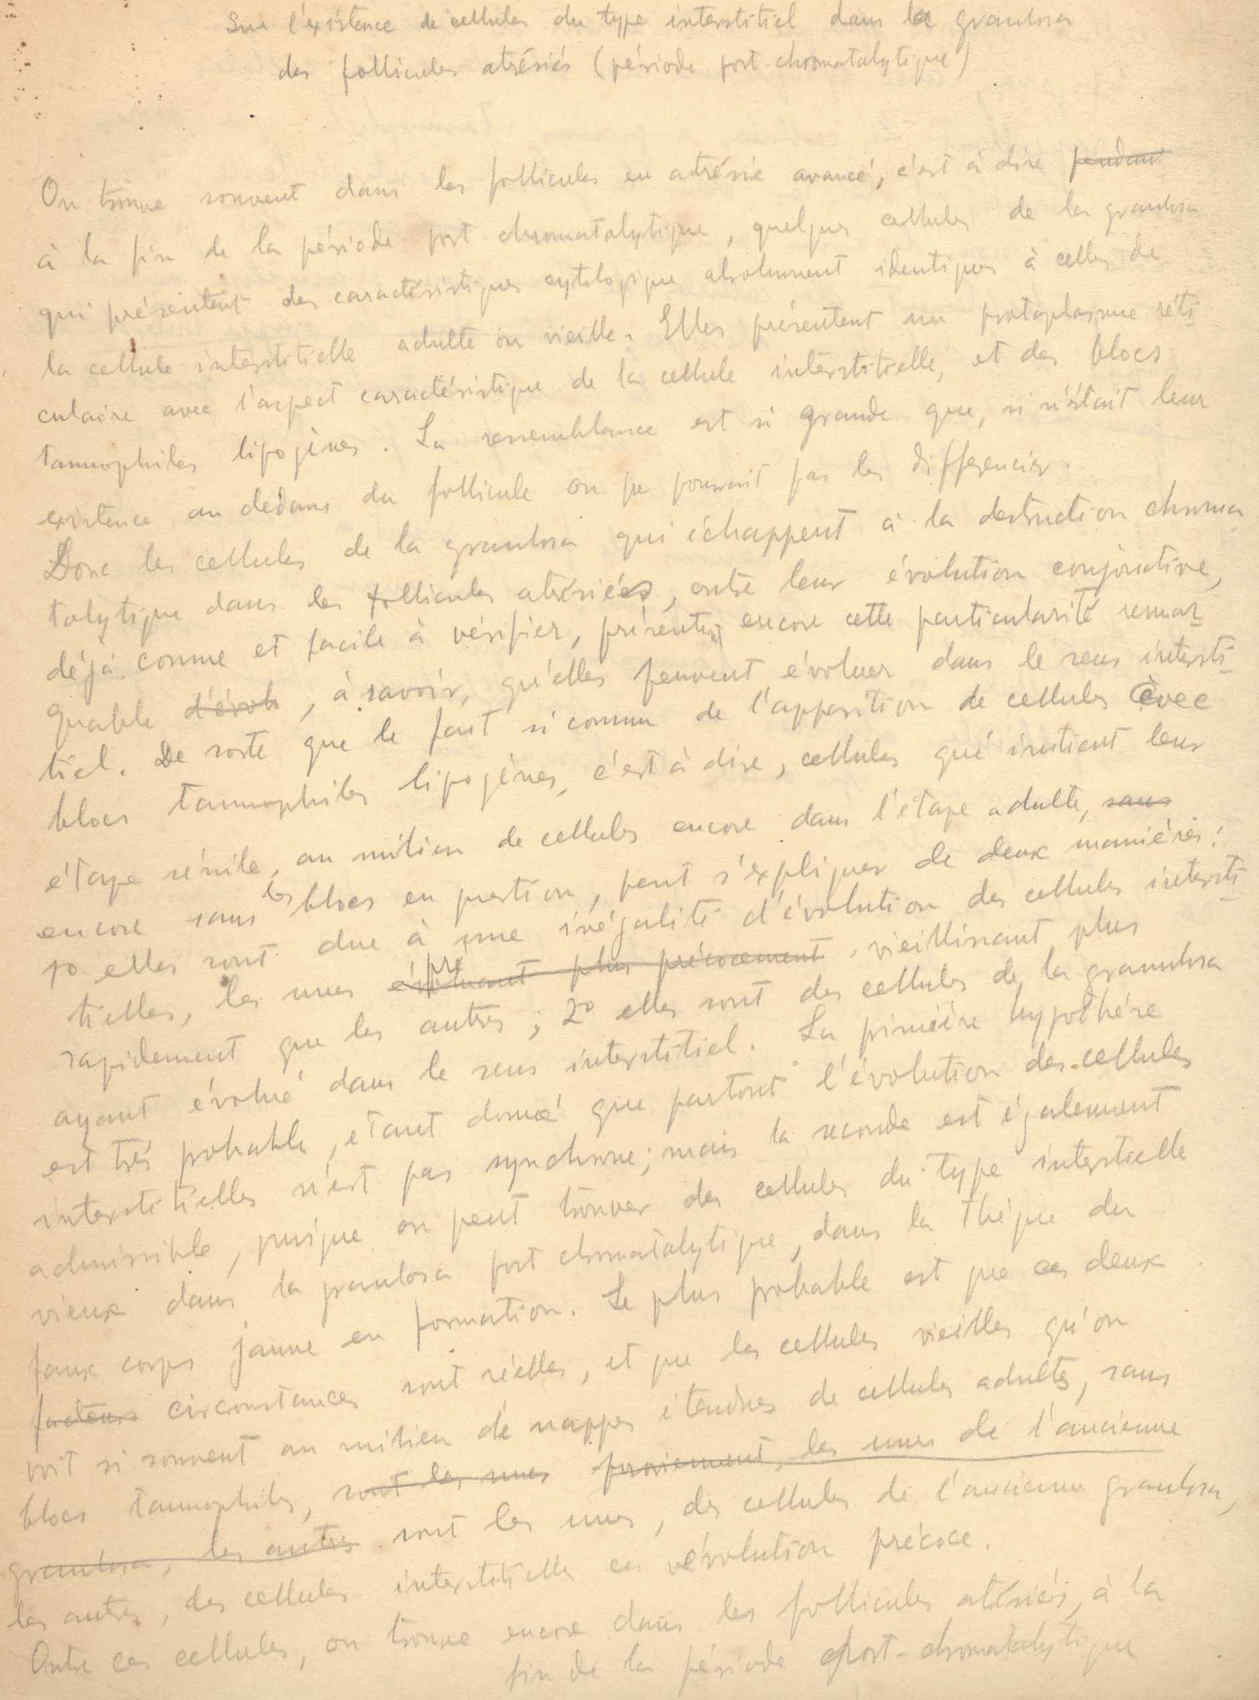 Sur l'existence de cellules du type interstitiel dans la granulosa
des follicules atrésiés (période post-chromatolytique)
On trouve souvent dans les follicules en atrésie avancé, c'est à dire pendant
à la fin de la période post chromatolytique, quelques cellules de la granulosa
qui présentent des caractéristiques cytologique absolument identiques à celles de
la cellule interstitielle adulte ou vieille. Elles présentent un protoplasme réti
culaire avec l'aspect caractéristique de la cellule interstitielle, et des blocs
tannophiles lipogènes. La ressemblance est si grande que, si n'était leur
existence au dedans du follicule on ne pourrait pas les differencier.
Donc les cellules de la granulosa qui échappent à la destruction chroma
tolytique dans les follicules atrésiées, outre leur évolution conjonctive,
déjà connue et facile à vérifier, présentent encore cette particularité remar
quable d'évol, à savoir, qu'elles peuvent évoluer dans le sens intersti
tiel. De sorte que le fait si commun de l'apparition de cellules avec
blocs tannophiles lipogènes, c'est à dire, cellules qui initient leur
étape sénile, au milieu de cellules encore dans l'étape adulte, sans
encore sans les blocs en question, peut s'expliquer de deux maniéres:
1º elles sont due à une inégalité d'évolution des cellules intersti
tielles, les unes évoluant plus précocement vieillissant plus
rapidement que les autres; 2º elles sont des cellules de la granulosa
ayant évolué dans le sens interstitiel. La première hypothése
est trés probable, etant donné que partout l'évolution des cellules
interstitielles n'est pas synchrone; mais la seconde est également
admissible, puisque on peut trouver des cellules du type interstielle
vieux dans la granulosa post chromatolytique, dans la thèque du
faux corps jaune en formation. Le plus probable est que ces deux
facteurs circonstances sont réelles, et que les cellules vieilles qu'on
voit si souvent au milieu de nappes étendues de cellules adultes, sans
blocs tannophiles, sont les unes proviennent, les unes de l'ancienne
granulosa, les autres sont les unes, des cellules de l'ancienne granulosa,
les autres, des cellules interstitielles en évolution précoce.
Outre ces cellules, on trouve encore dans les follicules atrésiés, à la
fin de la période post-chromatolytique